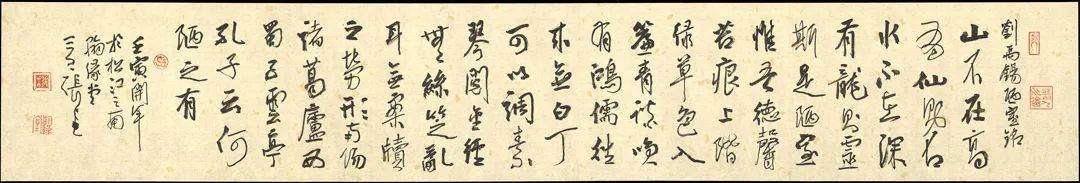 劉禹錫陋室銘
山不在高
有仙則名
水不在深
有龍則靈
斯是陋室
惟吾德馨
苔痕上階
綠草色入
簾青談笑
有鴻儒往
来無白丁
可以調素
琴閱金經
無絲竹亂
耳無案牘
之勞形南陽
諸葛廬西
蜀子雲亭
孔子云何
陋之有
壬寅開年
於松江之南